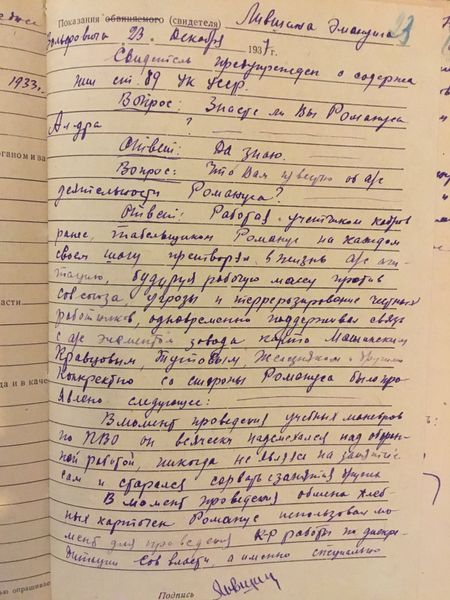 Показания обвиняемого (свидетеля) Лившица Эмануила
Вольфовича 23 Декабря 1937 г.
Свидетель предупрежден о содержа
нии ст 89 УК УССР.
Вопрос: Знаете ли Вы Романуса
Ал-дра ?
Ответ: Да знаю.
Вопрос: Что Вам известно об а/с
деятельности Романуса?
Ответ: Работая учетчиком кадров
ранее, табельщиком Романус на каждом
своем шагу претворял в жизнь а/с аги
тацию, будируя рабочую массу против
Совсоюза, угрозы и терроризирование
работников, одновременно поддерживал связь
с а/с элементом завода как то Машинским
Кравцовым, Тутовым, Железняком и другими
Конкретно со стороны Романуса было про
явлено следующее:
В момент проведения учебных маневров
по ПВО он всячески надсмехался над оборон
ной работой, никогда не являлся на занятие
сам и старался сорвать занятия
В момент проведения обмена хлеб-
ных карточек Романус использовал мо
мент для проведения КР работы по дискре
дитации Сов власти, а именно специально
Подпись Лившиц
23
1933 г.
органом и за
асти.
да и в каче
ью опрашивае